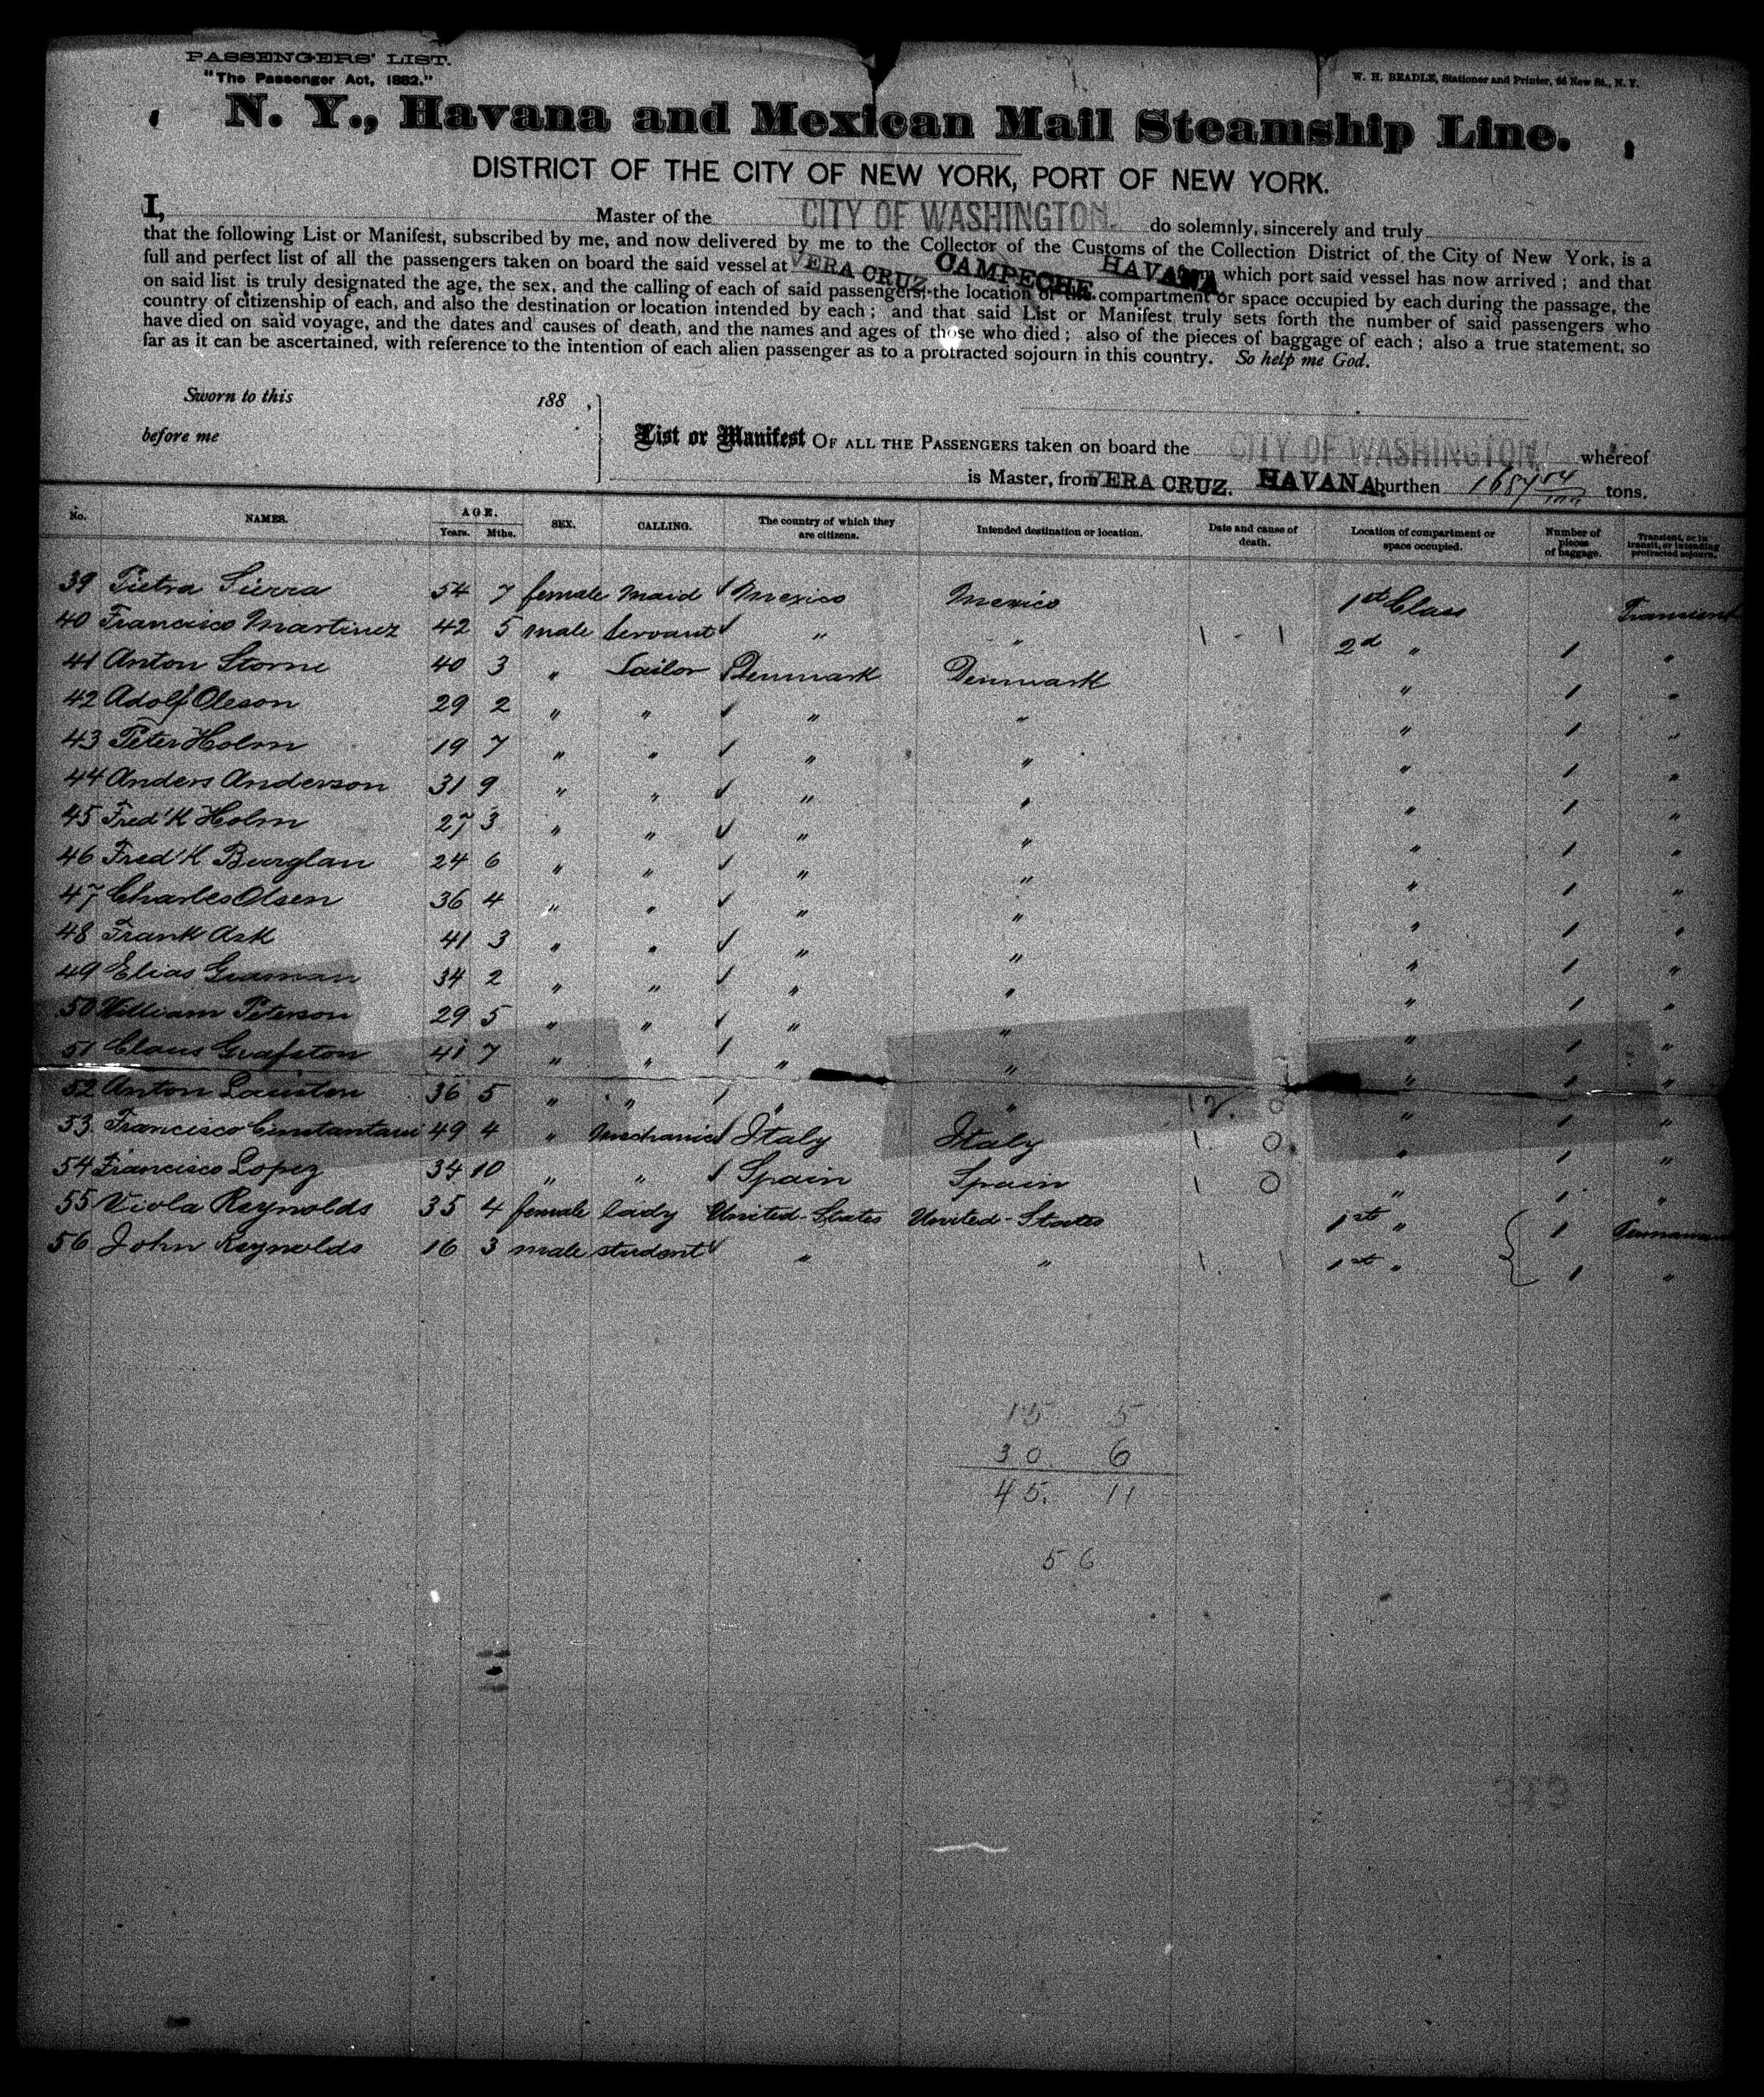 PASSENGERS' LIST.
"The Passenger Act, 1882."
W. H. BEADLE, Stationer and Printer, 66 New St., N. Y.
N. Y., Havana and Mexican Mail Steamship Line.
DISTRICT OF THE CITY OF NEW YORK, PORT OF NEW YORK.
I, Master of the CITY OF WASHINGTON. do solemnly, sincerely and truly
that the following List or Manifest, subscribed by me, and now delivered by me to the Collector of the Customs of the Collection District of the City of New York, is a
full and perfect list of all the passengers taken on board the said vessel at VERA CRUZ. CAMPECHE. HAVANA which port said vessel has now arrived; and that
on said list is truly designated the age, the sex, and the calling of each of said passengers, the location of the compartment or space occupied by each during the passage, the
country of citizenship of each, and also the destination or location intended by each; and that said List or Manifest truly sets forth the number of said passengers who
have died on said voyage, and the dates and causes of death, and the names and ages of those who died; also of the pieces of baggage of each; also a true statement, so
far as it can be ascertained, with reference to the intention of each alien passenger as to a protracted sojourn in this country. So help me God.
Sworn to this 188 ,
before me
List or Manifest OF ALL THE PASSENGERS taken on board the CITY OF WASHINGTON. whereof
is Master, from VERA CRUZ. HAVANA. burthen tons.
No. NAMES. AGE. Years. Mths. SEX. CALLING. The country of which they are citizens. Intended destination or location. Date and cause of death. Location of compartment or space occupied. Number of pieces of baggage. Transient, or in transit, or intending protracted sojourn.
39 Pietra Sierra 54 7 female maid ✓ Mexico Mexico 1st Class Transient
40 Francisco Martinez 42 5 male servant ✓ " " 1 - 1 2d " 1 "
41 Anton Storne 40 3 " Sailor ✓ Denmark Denmark " 1 "
42 Adolf Oleson 29 2 " " ✓ " " " 1 "
43 Peter Holm 19 7 " " ✓ " " " 1 "
44 Anders Anderson 31 9 " " ✓ " " " 1 "
45 Fred'k Holm 27 3 " " ✓ " " " 1 "
46 Fred'k Burglan 24 6 " " ✓ " " " 1 "
47 Charles Olsen 36 4 " " ✓ " " " 1 "
48 Frank Ask 41 3 " " ✓ " " " 1 "
49 Elias 34 2 " " ✓ " " " 1 "
50 William Peterson 29 5 " " ✓ " " " 1 "
51 Claus Grafston 41 7 " " ✓ " " " 1 "
52 Anton 36 5 " " ✓ " " 12. 0 " 1 "
53. Francisco 49 4 " Mechanic ✓ Italy Italy 1. 0 " 1 "
54 Francisco Lopez 34 10 " " ✓ Spain Spain 1 0 " 1 "
55 Viola Reynolds 35 4 female lady United-States United-States 1st " 1
56 John Reynolds 16 3 male student ✓ " " 1. 1 1st " 1 "
15 5
30. 6
45. 11
56